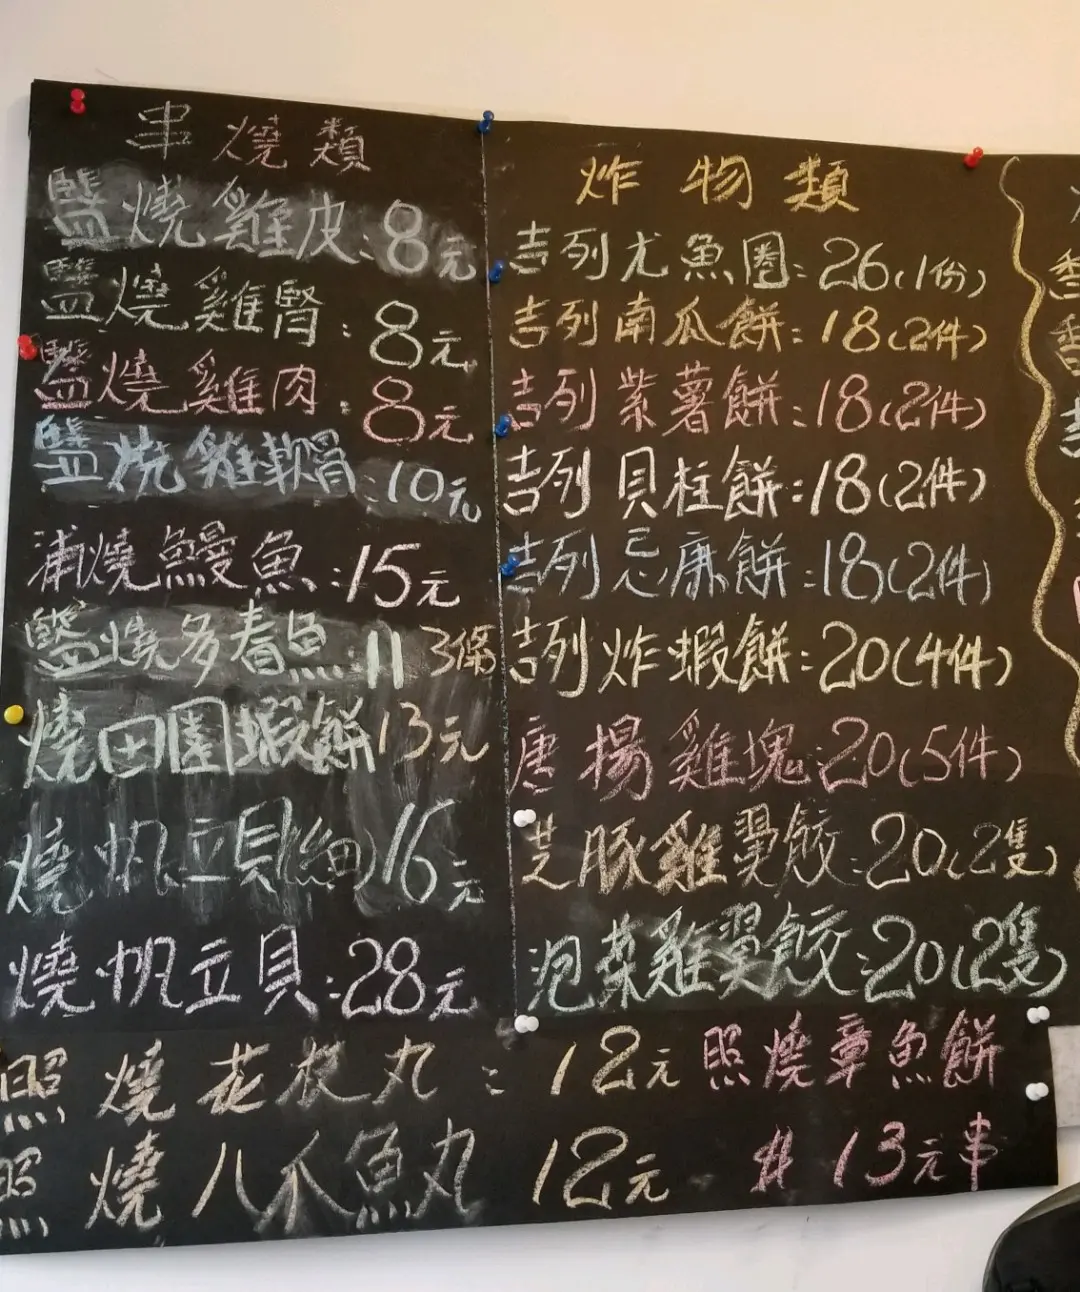 串燒類
鹽燒雞皮:8元
鹽燒雞腎:8元
鹽燒雞肉:8元
鹽燒雞軟骨:10元
蒲燒鰻魚:15元
鹽燒多春魚:11 3條
燒田園蝦餅13元
燒帆立貝(細)16元
燒帆立貝:28元
照燒花枝丸:12元
照燒八爪魚丸 12元
炸物類
吉列尤魚圈:26(1份)
吉列南瓜餅:18(2件)
吉列紫薯餅:18(2件)
吉列貝柱餅:18(2件)
吉列忌廉餅:18(2件)
吉列炸蝦餅:20(4件)
唐揚雞塊:20(5件)
芝豚雞翼餃:20(2隻)
泡菜雞翼餃:20(2隻)
照燒章魚餅
13元串